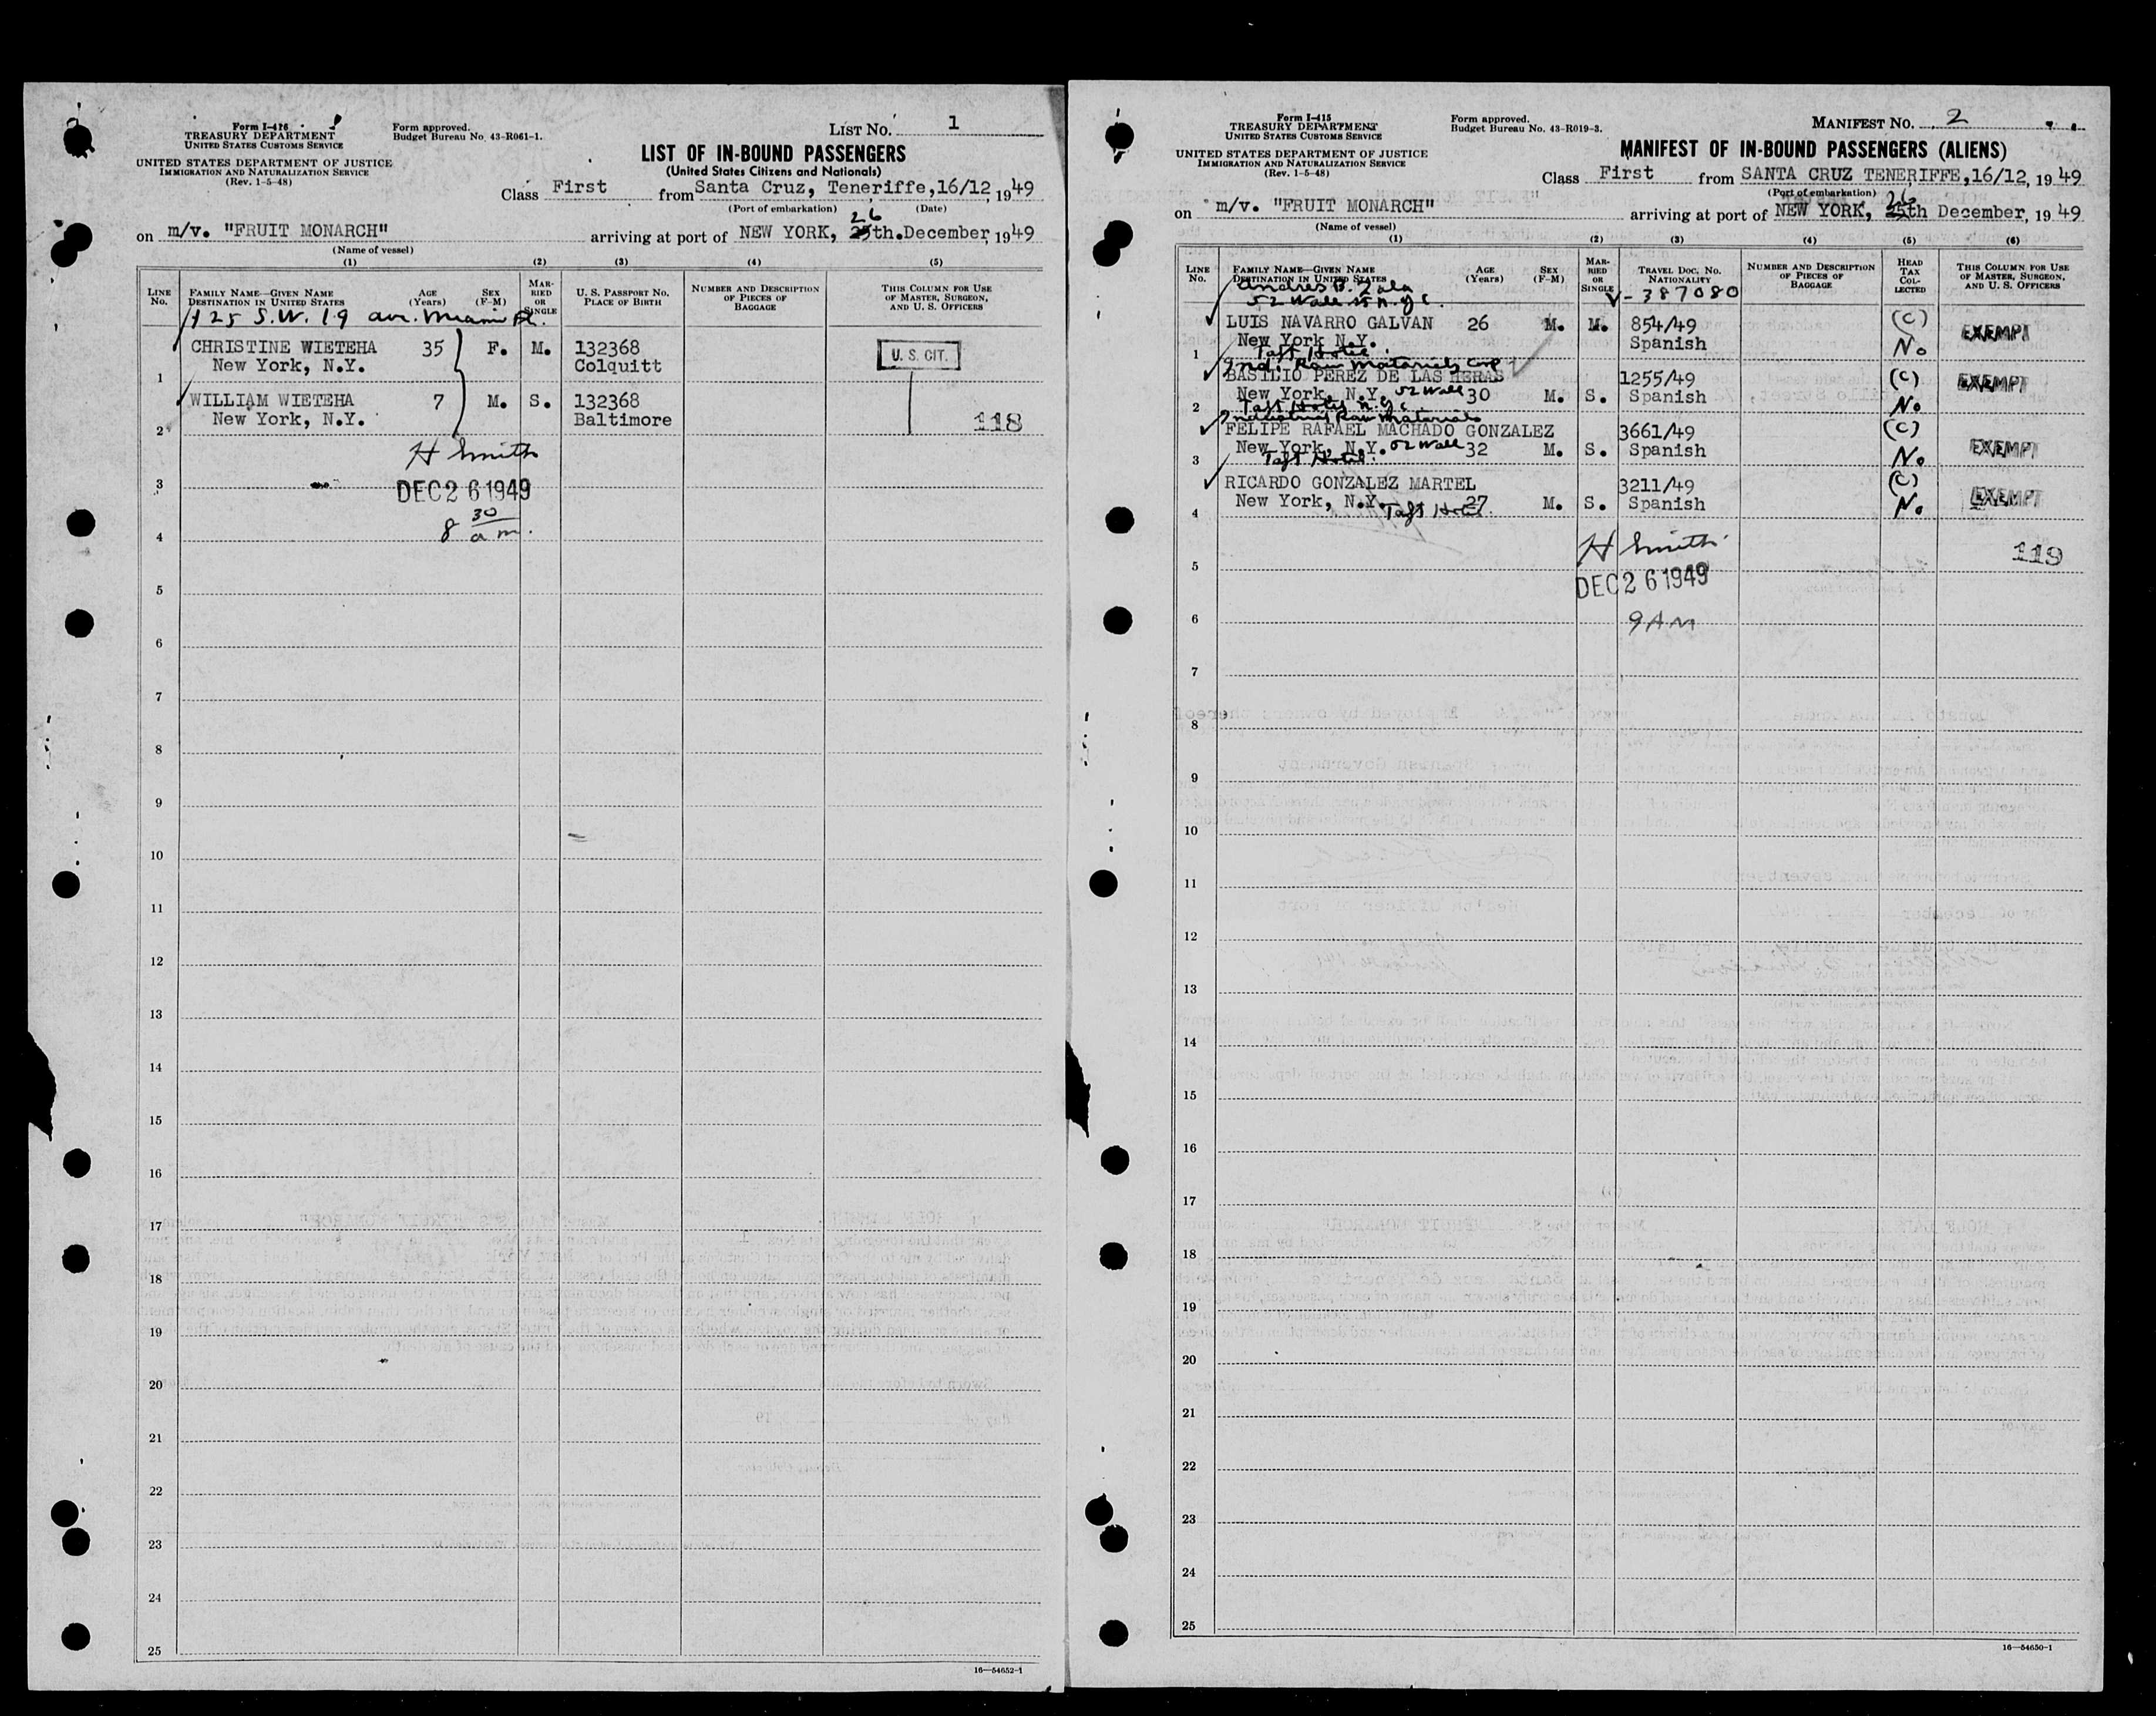 Form I-416
TREASURY DEPARTMENT
UNITED STATES CUSTOMS SERVICE
UNITED STATES DEPARTMENT OF JUSTICE
IMMIGRATION AND NATURALIZATION SERVICE
(Rev. 1-5-48)
Form approved.
Budget Bureau No. 43-R061-1.
LIST NO. 1
LIST OF IN-BOUND PASSENGERS
(United States Citizens and Nationals)
Class First from Santa Cruz, Teneriffe, 16/12, 1949
(Port of embarkation) (Date)
on m/v. "FRUIT MONARCH" arriving at port of NEW YORK, 26 25th. December, 1949
(Name of vessel)
(1) (2) (3) (4) (5)
LINE No. FAMILY NAME—GIVEN NAME DESTINATION IN UNITED STATES AGE (Years) SEX (F-M) MARRIED OR SINGLE U. S. PASSPORT NO. PLACE OF BIRTH NUMBER AND DESCRIPTION OF PIECES OF BAGGAGE THIS COLUMN FOR USE OF MASTER, SURGEON, AND U. S. OFFICERS
125 S.W. 19 ave. Miami Fl.
CHRISTINE WIETEHA 35 F. M. 132368 U. S. CIT.
1 New York, N.Y. Colquitt
WILLIAM WIETEHA 7 M. S. 132368
2 New York, N.Y. Baltimore 118
H Smith
3 DEC 26 1949
8 30 a m.
4
5
6
7
8
9
10
11
12
13
14
15
16
17
18
19
20
21
22
23
24
25
16—54652-1
Form I-415
TREASURY DEPARTMENT
UNITED STATES CUSTOMS SERVICE
UNITED STATES DEPARTMENT OF JUSTICE
IMMIGRATION AND NATURALIZATION SERVICE
(Rev. 1-5-48)
Form approved.
Budget Bureau No. 43-R019-3.
MANIFEST NO. 2
MANIFEST OF IN-BOUND PASSENGERS (ALIENS)
Class First from SANTA CRUZ TENERIFFE, 16/12, 1949
(Port of embarkation)
on m/v. "FRUIT MONARCH" arriving at port of NEW YORK, 26 25th December, 1949
(Name of vessel)
(1) (2) (3) (4) (5) (6)
LINE No. FAMILY NAME—GIVEN NAME DESTINATION IN UNITED STATES AGE (Years) SEX (F-M) MARRIED OR SINGLE TRAVEL DOC. NO. NATIONALITY NUMBER AND DESCRIPTION OF PIECES OF BAGGAGE HEAD TAX COLLECTED THIS COLUMN FOR USE OF MASTER, SURGEON, AND U. S. OFFICERS
Andres
52 Wall St N.Y.C. V-387080
LUIS NAVARRO GALVAN 26 M. M. 854/49 (C) EXEMPT
New York N.Y. Spanish No
1 Taft Hotel
Ind. Raw Materials Corp
BASILIO PEREZ DE LAS HERAS 1255/49 (C) EXEMPT
New York, N.Y. 52 Wall 30 M. S. Spanish No
2 Taft Hotel N.Y.C.
Industrial Raw Materials
FELIPE RAFAEL MACHADO GONZALEZ 3661/49 (C)
New York, N.Y. 52 Wall 32 M. S. Spanish No EXEMPT
3 Taft Hotel
RICARDO GONZALEZ MARTEL 3211/49 (C) EXEMPT
New York, N.Y. 27 M. S. Spanish No
4 Taft Hotel
H Smith 119
5 DEC 26 1949
6 9 AM
7
8
9
10
11
12
13
14
15
16
17
18
19
20
21
22
23
24
25
16—54650-1